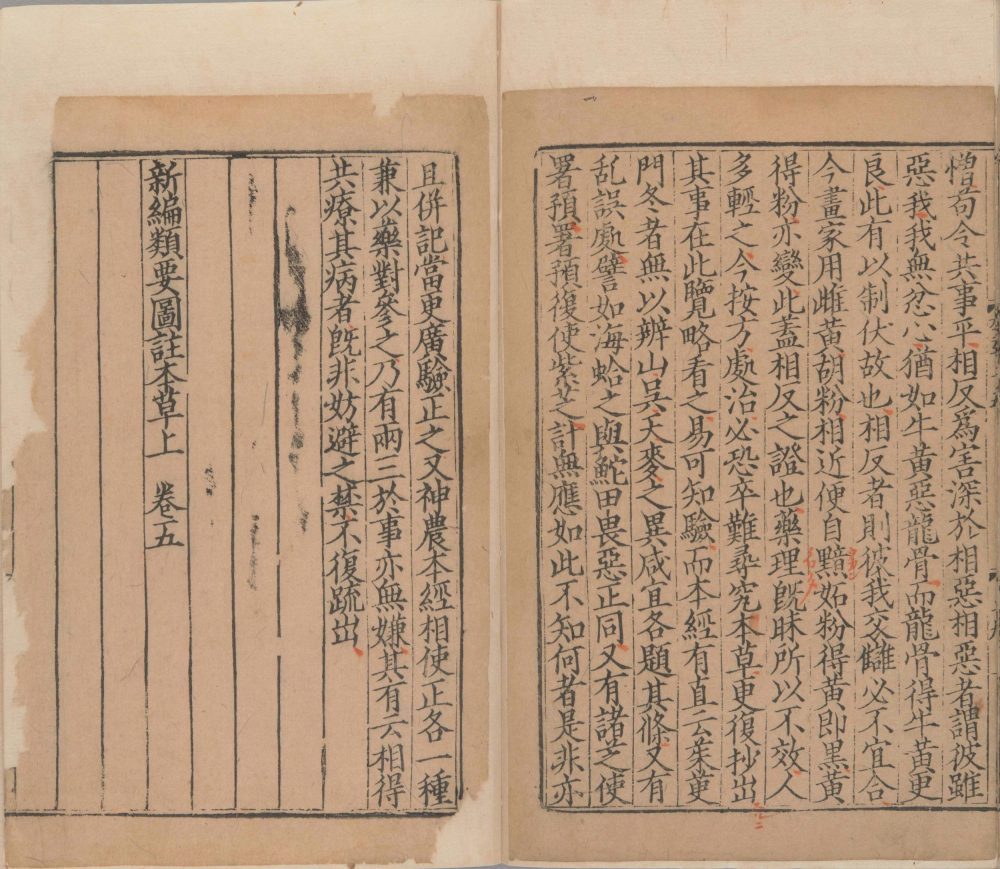 憎苟令共事乎相反爲害深於相惡相惡者謂彼雖
惡我我無忿心猶如牛黄惡龍骨而龍骨得牛黄更
良此有以制伏故也相反者則彼我交讎必不宜合
今畫家用雌黄胡粉相近便自黯妬粉得黄即黒黄
得粉亦變此蓋相反之證也藥理旣昧所以不效人
多輕之今按方處治必恐卒難尋究本草更復抄出
其事在此覽略看之易可知驗而本經有直云茱萸
門冬者無以辨山吳天麥之異咸宜各題其條又有
乱誤處譬如海蛤之與鮀田畏惡正同又有諸芝使
署預署預復使紫芝計無應如此不知何者是非亦
且併記當更廣驗正之又神農本經相使正各一種
兼以藥對參之乃有兩三於事亦無嫌其有云相得
共療其病者旣非妨避之禁不復疏出
新編類要圖註本草上 卷五